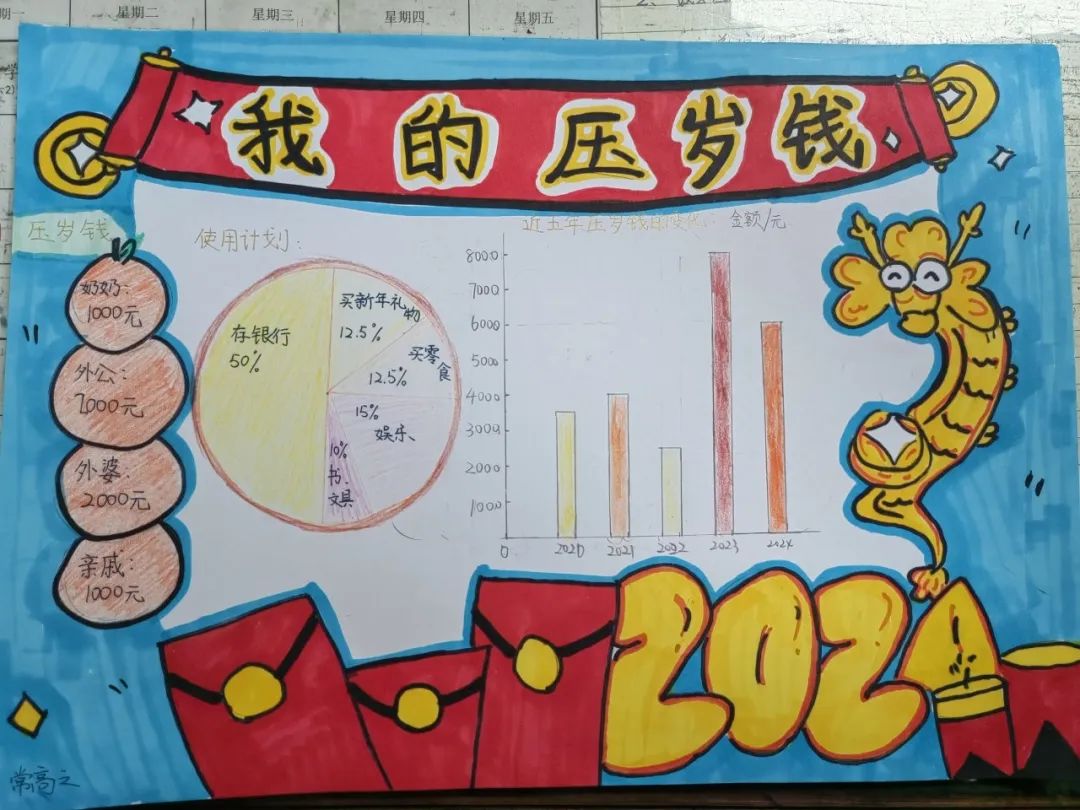 星期二
星期三
星期四
星期五
我的压岁钱
压岁钱
奶奶：
1000元
外公：
2000元
外婆：
2000元
亲戚：
1000元
使用计划：
存银行
50%
买新年礼物
12.5%
买零食
12.5%
15%
娱乐、
10%
书、
文具
近五年压岁钱的变化：
金额/元
8000
7000
6000
5000
4000
3000
2000
1000
0
2020
2021
2022
2023
2024
2024
常高之